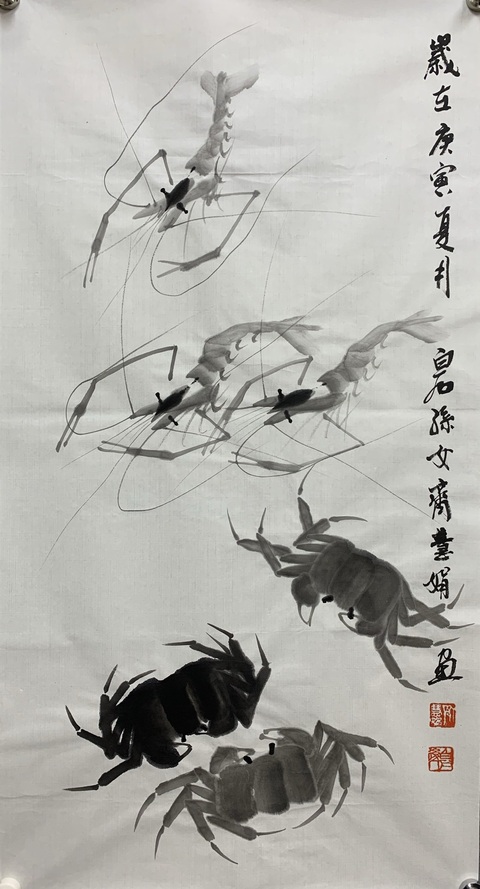 歲在庚寅夏月 白石孫女齊慧娟畫